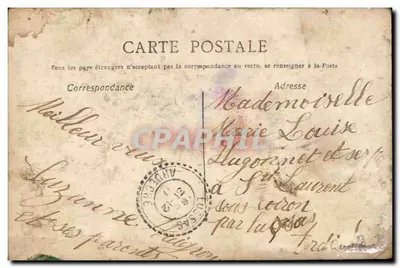 CARTE POSTALE
Tous les pays étrangers n'acceptent pas la correspondance au recto, se renseigner à la Poste
Correspondance
Adresse
Meilleur vœux
Suzanne
et ses parents
Mademoiselle
Marie Louise
Hugonnet et ses p
à St Laurent
sous coiron
par Lussas
Ardèche
LUSSAS
ARDECHE
CPAPHIL